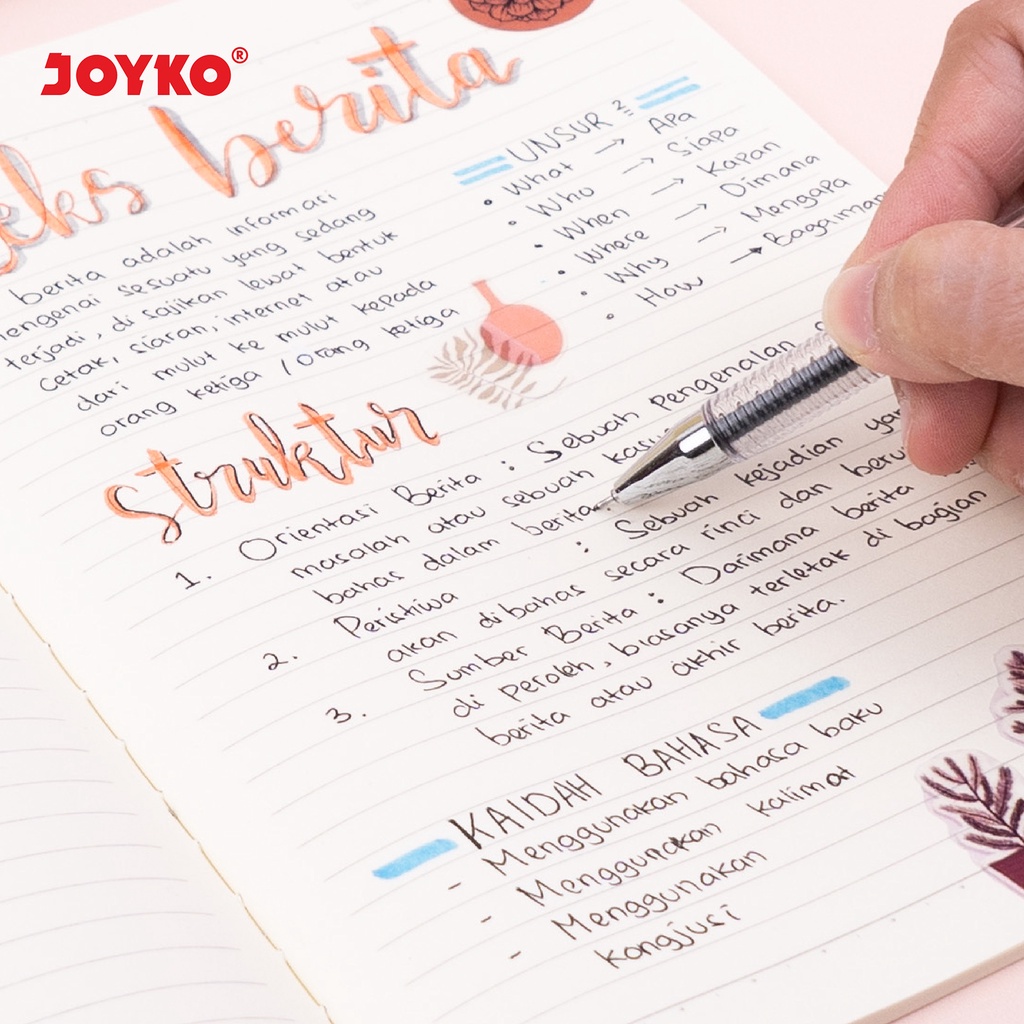 JOYKO®
eks berita
berita adalah informasi
mengenai sesuatu yang sedang
terjadi, di sajikan lewat bentuk
cetak, siaran, internet atau
dari mulut ke mulut kepada
orang ketiga / orang ketiga
UNSUR²
• What → Apa
• Who → Siapa
• When → Kapan
• Where → Dimana
• Why → Mengapa
• How → Bagaiman
Struktur
1. Orientasi Berita : Sebuah Pengenalan
masalah atau sebuah
bahas dalam berita
2. Peristiwa : Sebuah kejadian
akan dibahas secara rinci dan
3. Sumber Berita : Darimana berita
di peroleh, biasanya terletak di bagian
berita atau akhir berita.
KAIDAH BAHASA
- Menggunakan bahasa baku
- Menggunakan kalimat
- Menggunakan
kongjusi